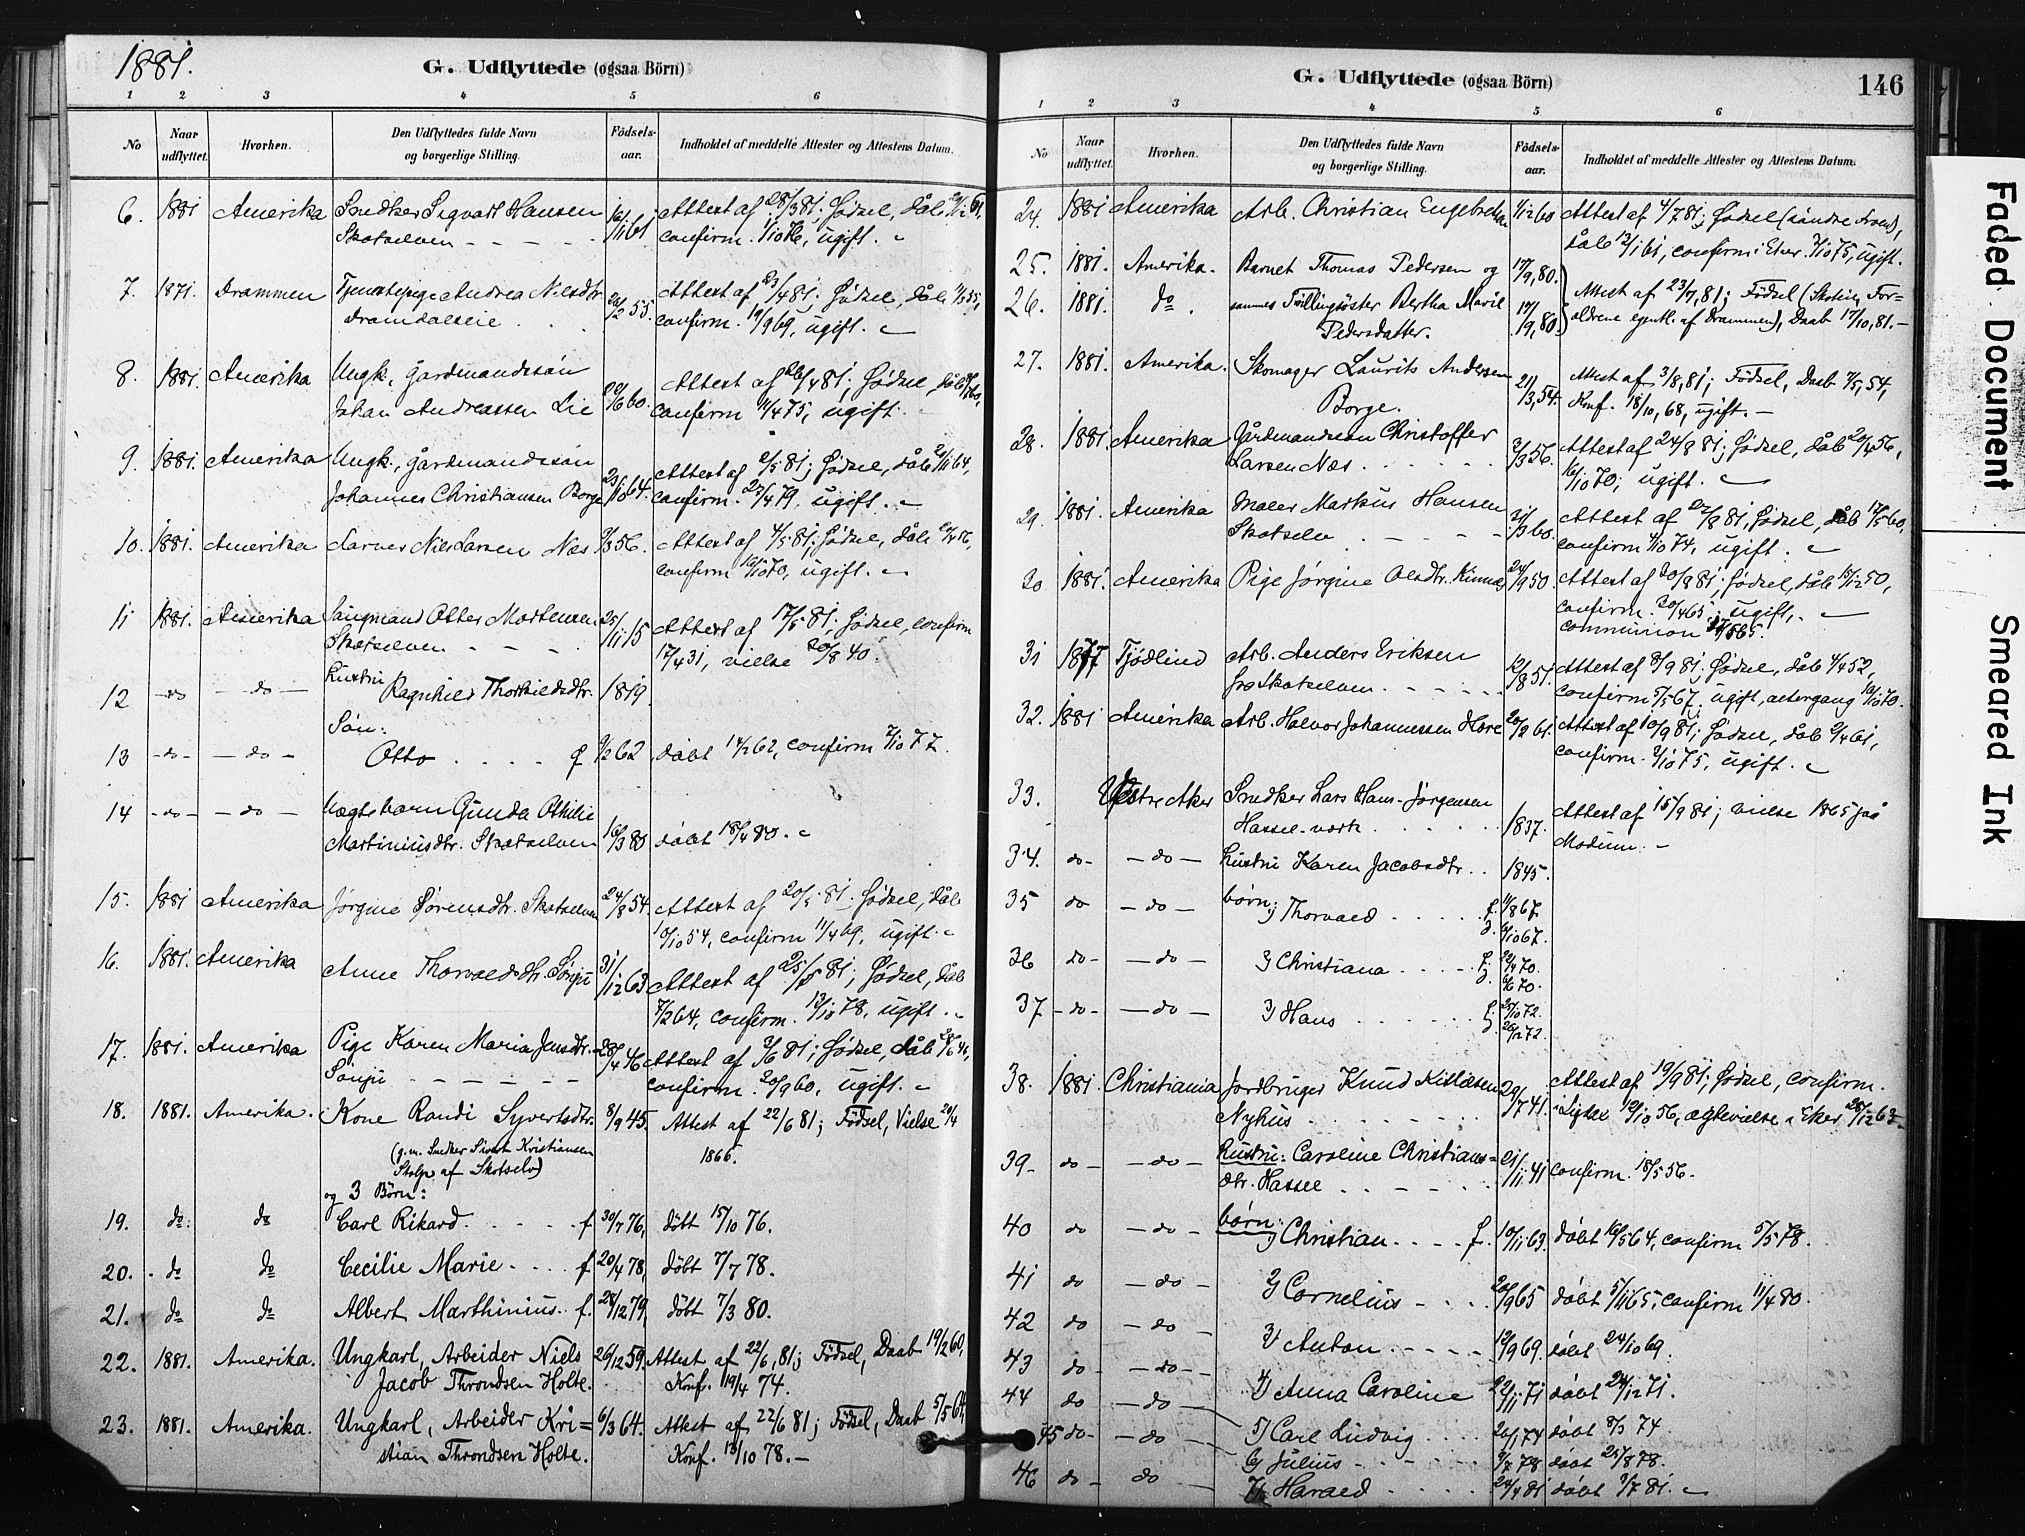 1881.
G. Udflyttede (ogsaa Börn)
1 2 3 4 5 6
No
Naar udflyttet.
Hvorhen.
Den Udflyttedes fulde Navn
og borgerlige Stilling.
Födsels-
aar.
Indholdet af meddelte Attester og Attestens Datum.
6. 1881 Amerika Snedker Sigvart Hansen 16/11 61 Attest af 28/3 81; Fødsel, dåb
Skotselven confirm. 1/10 76, ugift.
7. 1871. Drammen Tjenestepige Andrea Nilsdtr. 55. Attest af 23/4 81; Fødsel, dåb
Dramdalseie confirm. 19/9 69, ugift.
8. 1881. Amerika Ungk., gårdmandssøn
Johan Andreassen Lie 22/6 60. Attest af 26/4 81; Fødsel, dåb
confirm 11/4 75, ugift.
9. 1881. Amerika Ungk., gårdmandssøn Attest af 2/5 81; Fødsel, dåb 64,
Johannes Christiansen Borge 23/10 64. confirm. 27/4 79, ugift.
10. 1881. Amerika Larver Nils Larsen Næs 3/3 56. Attest af 4/5 81; Fødsel, dåb 20/4 56,
confirm 16/10 70, ugift.
11 1881. Amerika Saugmand Otter Mortensen 25/11 15 Attest af 17/5 81; Fødsel, confirm
Skotselven 17/4 31, vielse 20/8 40.
12 do do Hustru
Ragnhild Thorkildsdtr. 1819.
Søn:
13 do do Otto f 9/2 62 døbt 14/2 62, confirm 7/10 77.
14 do do Uægte barn Gunda Othilie
Martiniusdtr. Skotselven 16/3 80 døbt 18/4 80.
15. 1881 Amerika Jørgine Sørensdtr. Skotselven 24/8 54. Attest af 20/5 81; Fødsel, dåb
10/10 54, confirm 11/4 69, ugift.
16. 1881. Amerika Anne Thorvaldsdtr. Sønju 31/12 63 Attest af 25/5 81; Fødsel, dåb
7/2 64, confirm. 13/10 78, ugift.
17. 1881. Amerika Pige Karen Maria Jensdtr. 28/4 46 Attest af 3/6 81; Fødsel, dåb
Sønju confirm. 30/9 60, ugift.
18. 1881. Amerika. Kone Randi Syvertsdtr. 8/9 45. Attest af 22/6 81; Födsel, Vielse 20/4
(g.m. Snedker Sivert Kristiansen 1866.
Stolpe af Skotselv)
og 3 Börn:
19. do do Carl Rikard f 30/7 76, döbt 15/10 76.
20. do do Cecilie Marie f 20/4 78, döbt 7/7 78.
21. do do Albert Marthinius f. 28/12 79, döbt 7/3 80.
22. 1881. Amerika. Ungkarl, Arbeider Niels 26/12 59. Attest af 22/6, 81; Födsel, Daab 19/2 60,
Jacob Throndsen Holte. Konf. 19/4 74.
23. 1881. Amerika. Ungkarl, Arbeider Kri= 6/3 64. Attest af 22/6 81; Födsel, Daab 5/5 64,
stian Throndsen Holte. Konf. 13/10 78.
G. Udflyttede (ogsaa Börn)
146
1 2 3 4 5 6
No
Naar udflyttet.
Hvorhen.
Den Udflyttedes fulde Navn
og borgerlige Stilling.
Födsels-
aar.
Indholdet af meddelte Attester og Attestens Datum.
24. 1881 Amerika Arb. Christian Engebretsen 1/12 60 Attest af 4/7 81; Fødsel
dåb 13/1 61, confirm i Eker 3/10 75, ugift.
25. 1881. Amerika. Barnet Thomas Pedersen og 17/9, 80.
26. 1881. do. sammes Tvillingsöster Bertha Marie 17/9, 80. Attest af 23/7, 81; Födsel (Skotselv, For=
Pedersdatter. ældrene egentl. af Drammen), Daab 17/10, 81.
27. 1881. Amerika. Skomager Laurits Andersen 21/3, 54. Attest af 3/8, 81; Födsel, Daab 7/5, 54,
Borge. Konf. 18/10, 68, ugift.
28. 1881. Amerika Gårdmandssøn Christoffer Attest af 24/8 81; Fødsel, dåb 20/4 56,
Larsen Næs 3/3 56. 16/10 70; ugift.
29. 1881. Amerika Maler Markus Hansen Attest af 27/8 81; Fødsel, dåb 17/5 60,
Skotselv 60. confirm 4/10 74, ugift.
30 1881. Amerika Pige Jørgine Olsdtr. Kinnas 24/9 50 Attest af 30/8 81; Fødsel, dåb 15/12 50,
confirm. 30/4 65; ugift,
communion 65.
31 1877 Tjødling Arb. Anders Eriksen 12/8 51. Attest af 8/9 81; Fødsel, dåb 4/4 52,
fra Skotselven confirm 5/5 67; ugift, altergang 10/10 70.
32. 1881 Amerika Arb. Halvor Johannessen Hore 20/2 61. Attest af 10/9 81; Fødsel, dåb 2/4 61,
confirm. 3/10 75, ugift.
33. Vestre Aker Snedker Lars Hans Jørgensen
Hassel-værk 1837. Attest af 15/9 81; vielse 1865 på
Modum.
34. do do hustru Karen Jacobsdtr. 1845.
35 do do børn: 1) Thorvald f. 11/8 67. 6/10 67.
36 do do 2) Christiana f. 22/4 70. 6/6 70.
37 do do 3) Hans f. 25/10 72. 26/12 72.
38. 1881. Christiania Jordbruger Knud Kittilsen 29/7 41. Attest af 19/9 81; Fødsel, confirm.
Nyhus i Sigdal 12/10 56, ægtevielse i Eker 28/12 63
39 do do Hustru: Caroline Christians= 21/11 41 confirm. 18/5 56.
dtr. Hassel
40 do do børn:
1) Christian f. 10/11 63. døbt 16/5 64, confirm 5/5 78.
41 do do 2) Cornelius 20/9 65 døbt 5/11 65, confirm 11/4 80.
42 do do 3) Anton 12/9 69. døbt 24/10 69.
43 do do 4) Anna Caroline 22/11 71 døbt 24/12 71.
44 do do 5) Carl Ludvig 20/1 74 døbt 8/3 74
45 do do 6) Julius 9/7 78 døbt 25/8 78.
46 do do 7) Harald 24/4 81 døbt 3/7 81.
Faded Document
Smeared Ink